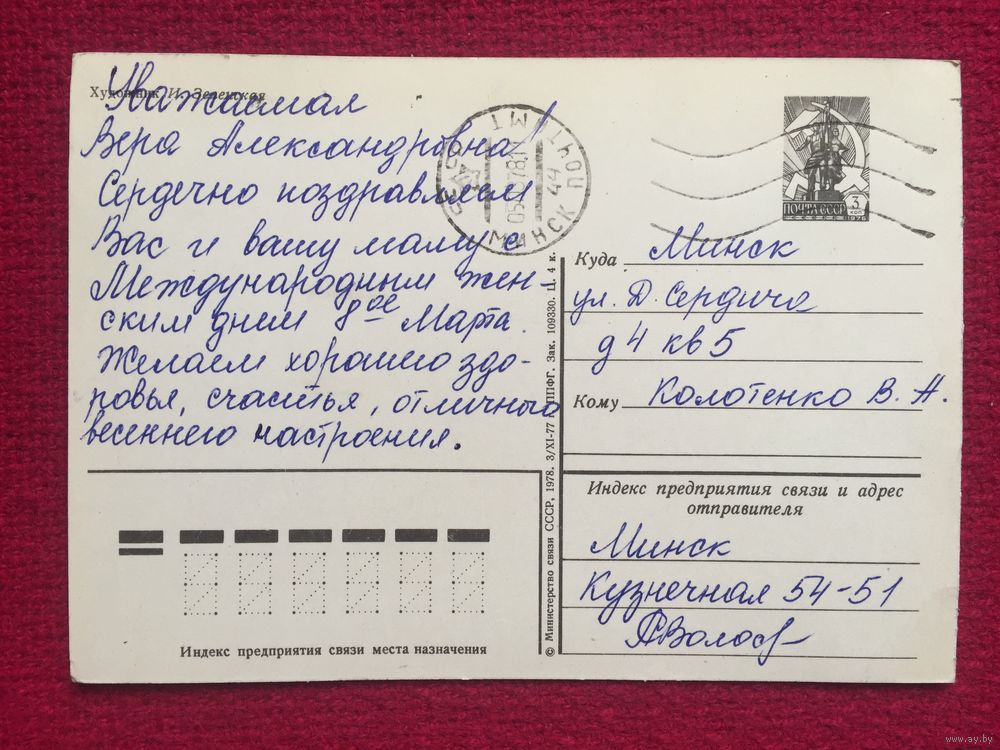 Художник И. Зеленская
Уважаемая
Вера Александровна!
Сердечно поздравляем
Вас и вашу маму с
Международным жен-
ским днем 8ое Марта.
Желаем хорошего здо-
ровья, счастья, отличного
весеннего настроения.
МИНСК
ПОЧТАМТ
44
ПОЧТА СССР
3
КОП
1976
Куда Минск
ул. Д. Сердича
д 4 кв 5
Кому Колотенко В. А.
Индекс предприятия связи и адрес
отправителя
Минск
Кузнечная 54-51
Индекс предприятия связи места назначения
© Министерство связи СССР, 1978. 3/XI-77 г. ППФГ. Зак. 109330. Ц. 4 к.
www.ay.by